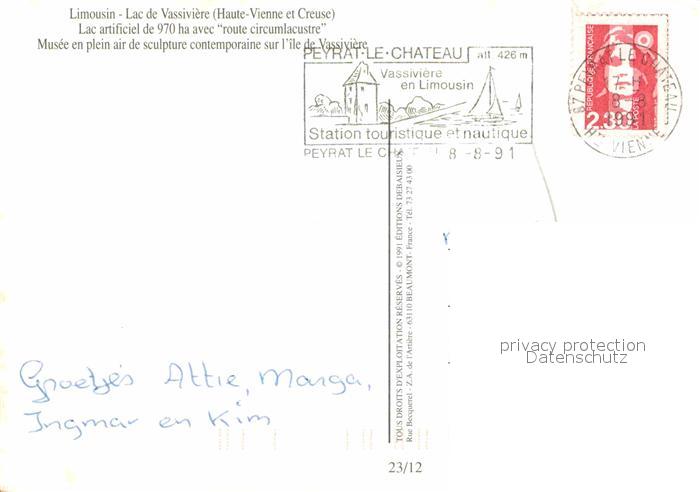 Limousin - Lac de Vassivière (Haute-Vienne et Creuse)
Lac artificiel de 970 ha avec "route circumlacustre"
Musée en plein air de sculpture contemporaine sur l'île de Vassivière
PEYRAT-LE-CHATEAU alt 426 m
Vassivière
en Limousin
Station touristique et nautique
PEYRAT LE CHATEAU 8-8-91
REPUBLIQUE FRANÇAISE
LA POSTE
TOUS DROITS D'EXPLOITATION RÉSERVÉS - © 1991 ÉDITIONS DEBAISIEUX
Rue Becquerel - Z.A. de l'Artière - 63110 BEAUMONT - France - Tél. 73 27 43 00
privacy protection
Datenschutz
Groetjes Attie, Marga,
Ingmar en Kim
23/12